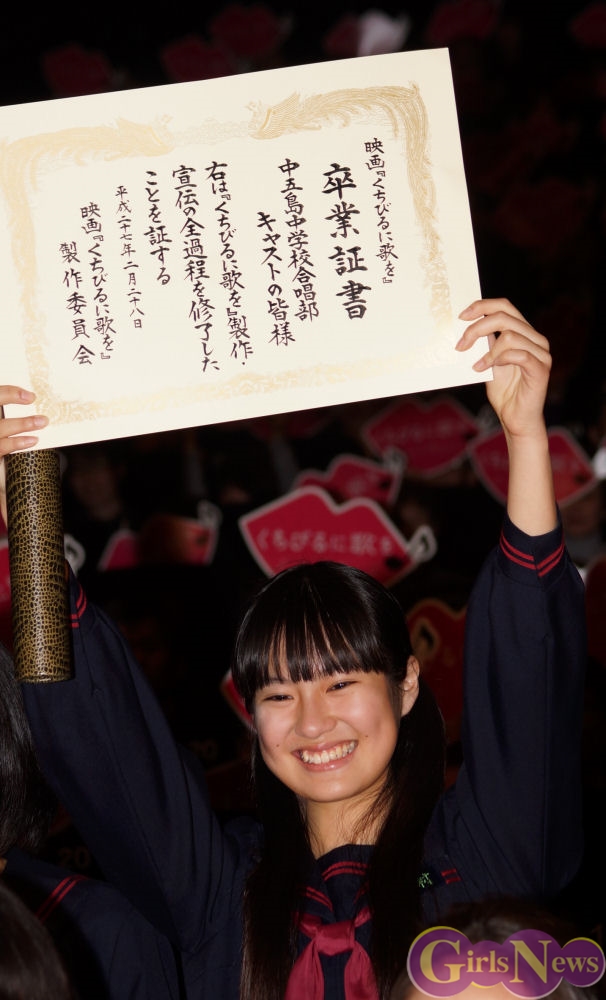 映画『くちびるに歌を』
卒業証書
中五島中学校合唱部
キャストの皆様
右は『くちびるに歌を』製作・
宣伝の全過程を修了した
ことを証する
平成二十七年二月二十八日
映画『くちびるに歌を』
製作委員会
くちびるに歌を
GirlsNews